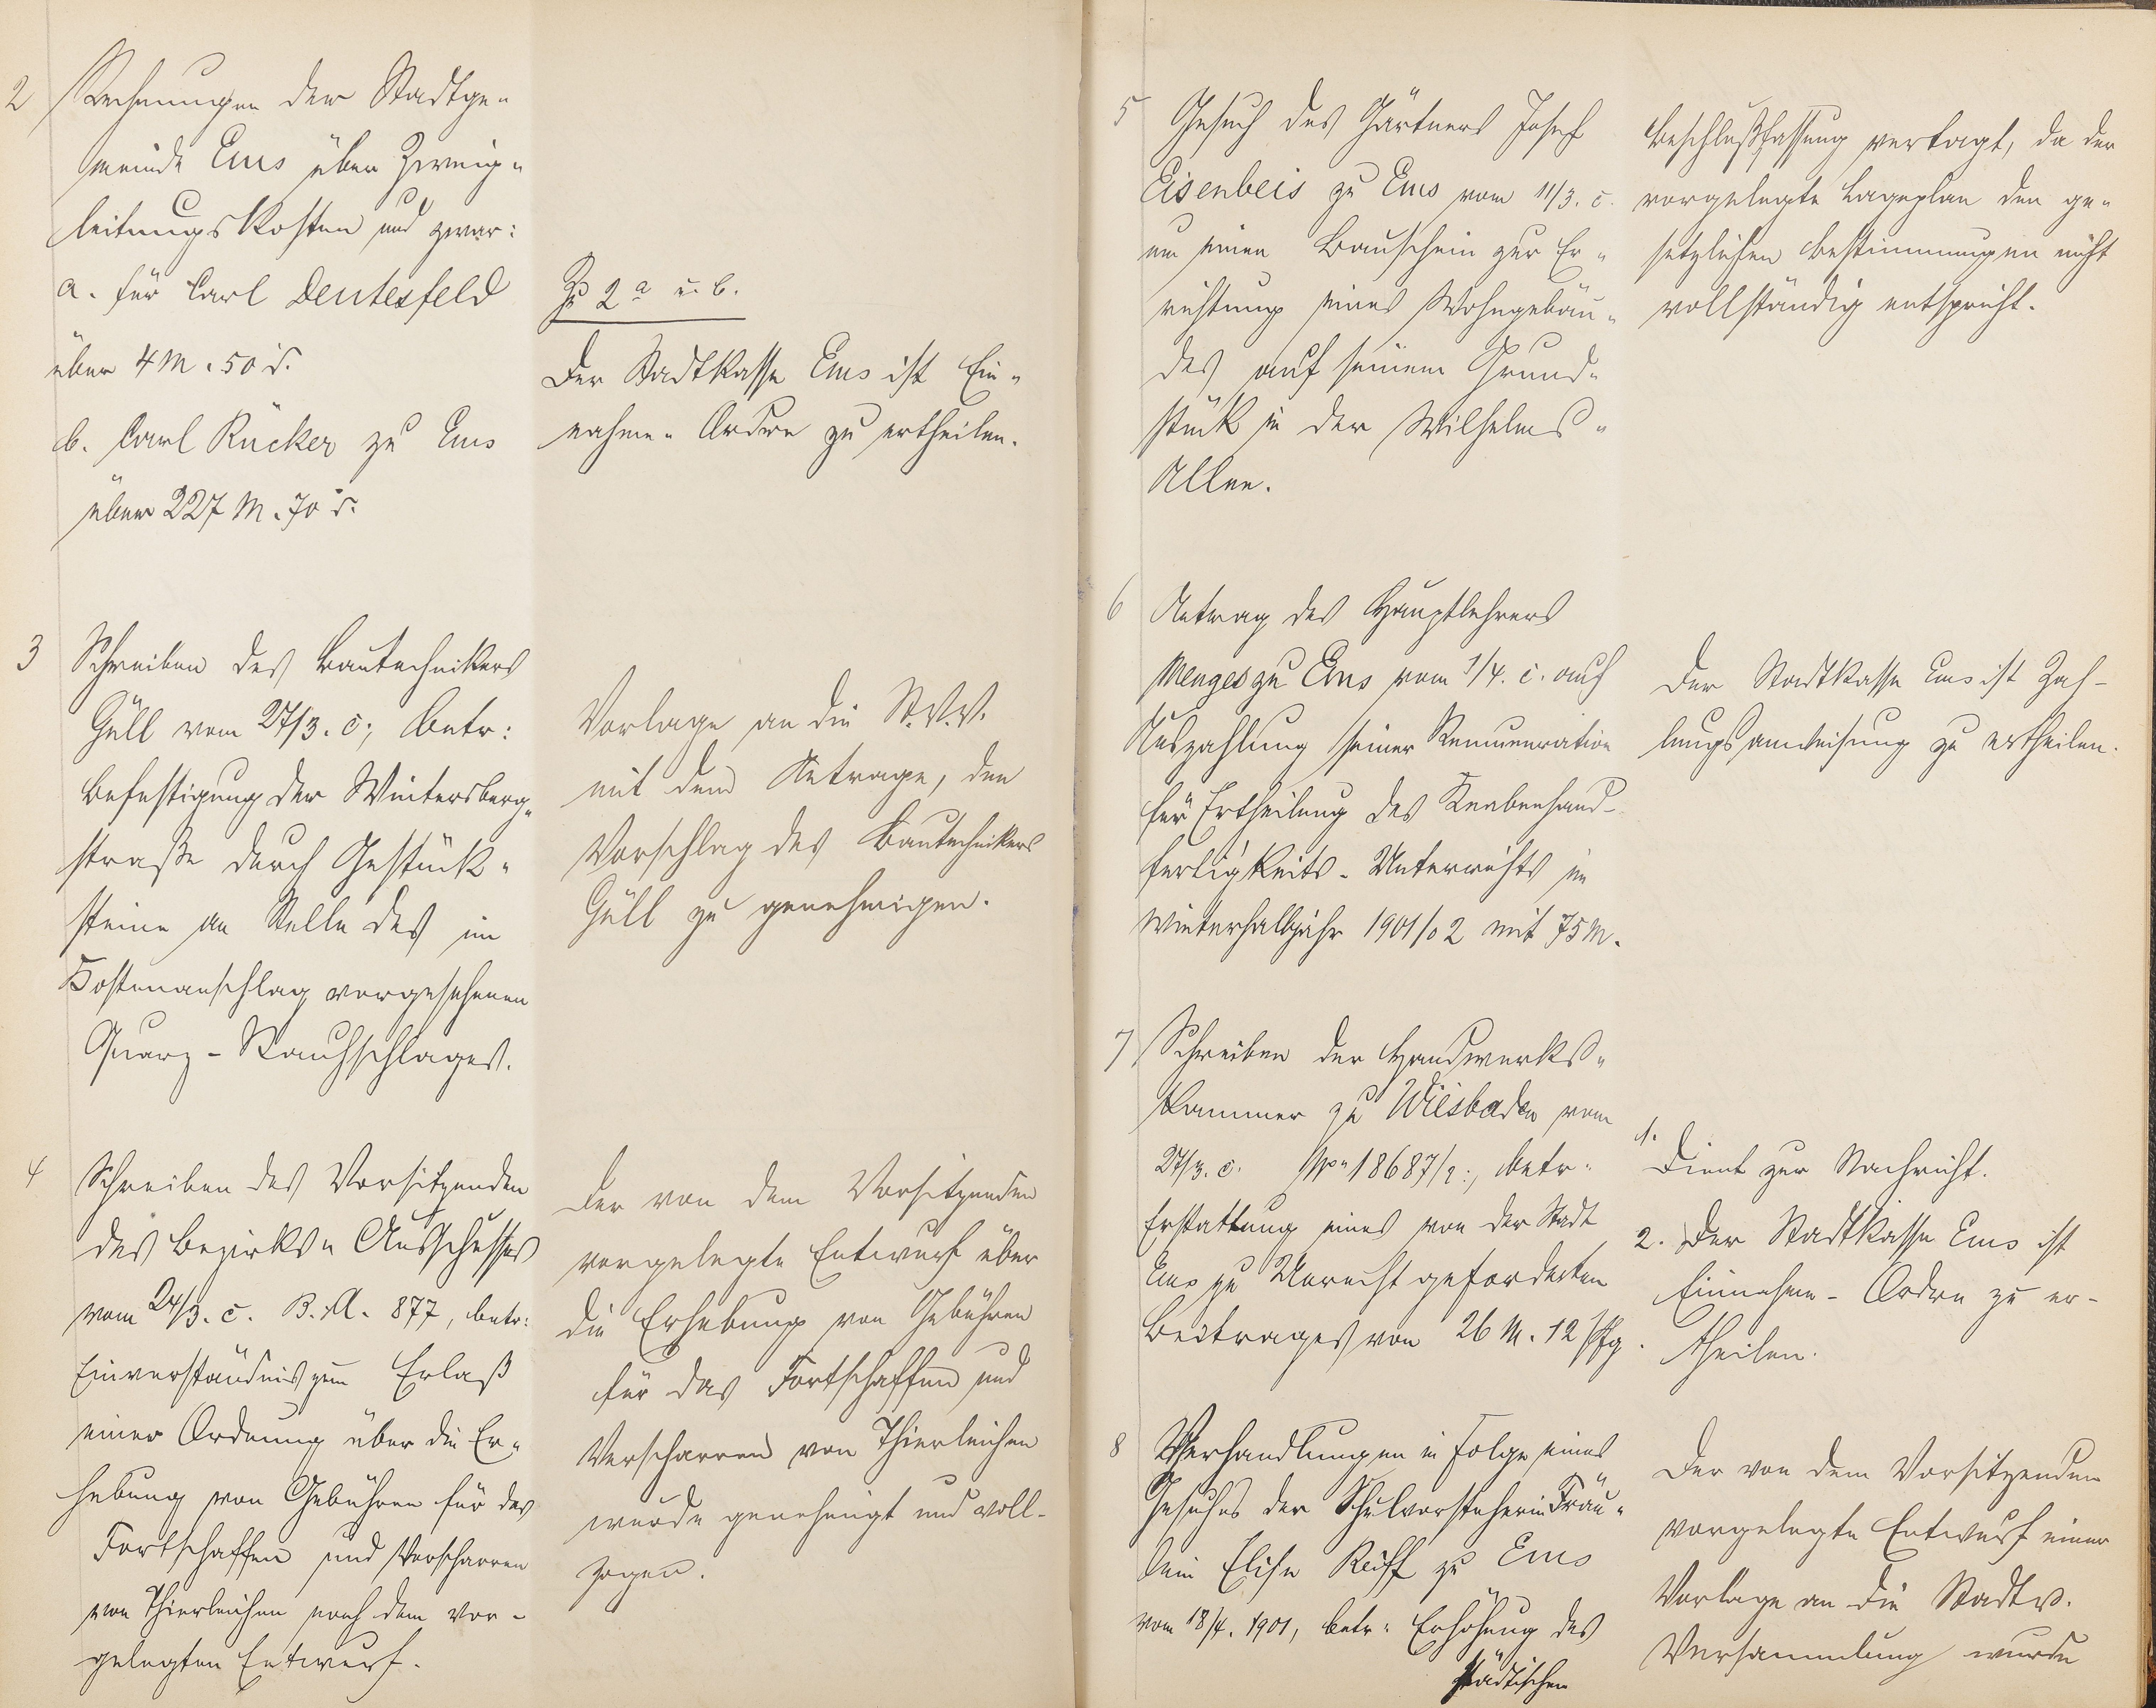 2 Rechnungen der Stadtge-
meinde Ems über Zweig-
leitungskosten und zwar:
a. für Carl Deutesfeld
über 4 M. 50 d.
b. Carl Rücker zu Ems
über 227 M. 70 d.
Zu 2 a u. b.
Der Stadtkasse Ems ist Ein-
nahme-Ordre zu ertheilen.
3 Schreiben des Bautechnikers
Güll vom 27/3. c; betr:
Befestigung der Wintersberg-
straße durch Gestück-
steine an Stelle des im
Kostenanschlag vorgesehenen
Quarz-Rauhschlages.
Vorlage an die St.V.V.
mit dem Antrage, den
Vorschlag des Bautechnikers
Güll zu genehmigen.
4 Schreiben des Vorsitzenden
des Bezirks-Ausschusses
vom 24/3. c. B.A. 877, betr:
Einverständnis zum Erlaß
einer Ordnung über die Er-
hebung von Gebühren für das
Fortschaffen und Verscharren
von Thierleichen nach dem vor-
gelegten Entwurf.
Der von dem Vorsitzenden
vorgelegte Entwurf über
die Erhebung von Gebühren
für das Fortschaffen und
Verscharren von Thierleichen
wurde genehmigt und voll-
zogen.
5 Gesuch des Gärtners Josef
Eisenbeis zu Ems vom 11/3. c.
um einen Bauschein zur Er-
richtung eines Wohngebäu-
des auf seinem Grund-
stück in der Wilhelms-
Allee.
Beschlußfassung vertagt, da der
vorgelegte Lageplan den ge-
setzlichen Bestimmungen nicht
vollständig entspricht.
6 Antrag des Hauptlehrers
Menges zu Ems vom 1/4. c. auf
Auszahlung seiner Remuneration
für Ertheilung des Knabenhand-
fertigkeits-Unterrichts im
Winterhalbjahr 1901/02 mit 75 M.
Der Stadtkasse Ems ist Zah-
lungsanweisung zu ertheilen.
7 Schreiben der Handwerks-
kammer zu Wiesbaden vom
27/3. c. 18687/2:, betr:
Erstattung eines von der Stadt
Ems zu Unrecht geforderten
Beitrages von 26 M. 12 Pfg.
1. Dient zur Nachricht.
2. Der Stadtkasse Ems ist
Einnahme-Ordre zu er-
theilen.
8 Verhandlungen in Folge eines
Gesuches der Schulvorsteherin Fräu-
lein Elise Reiff zu Ems
vom 18/4. 1901, betr: Erhöhung des
städtischen
Der von dem Vorsitzenden
vorgelegte Entwurf einer
Vorlage an die Stadtv.
Versammlung wurde